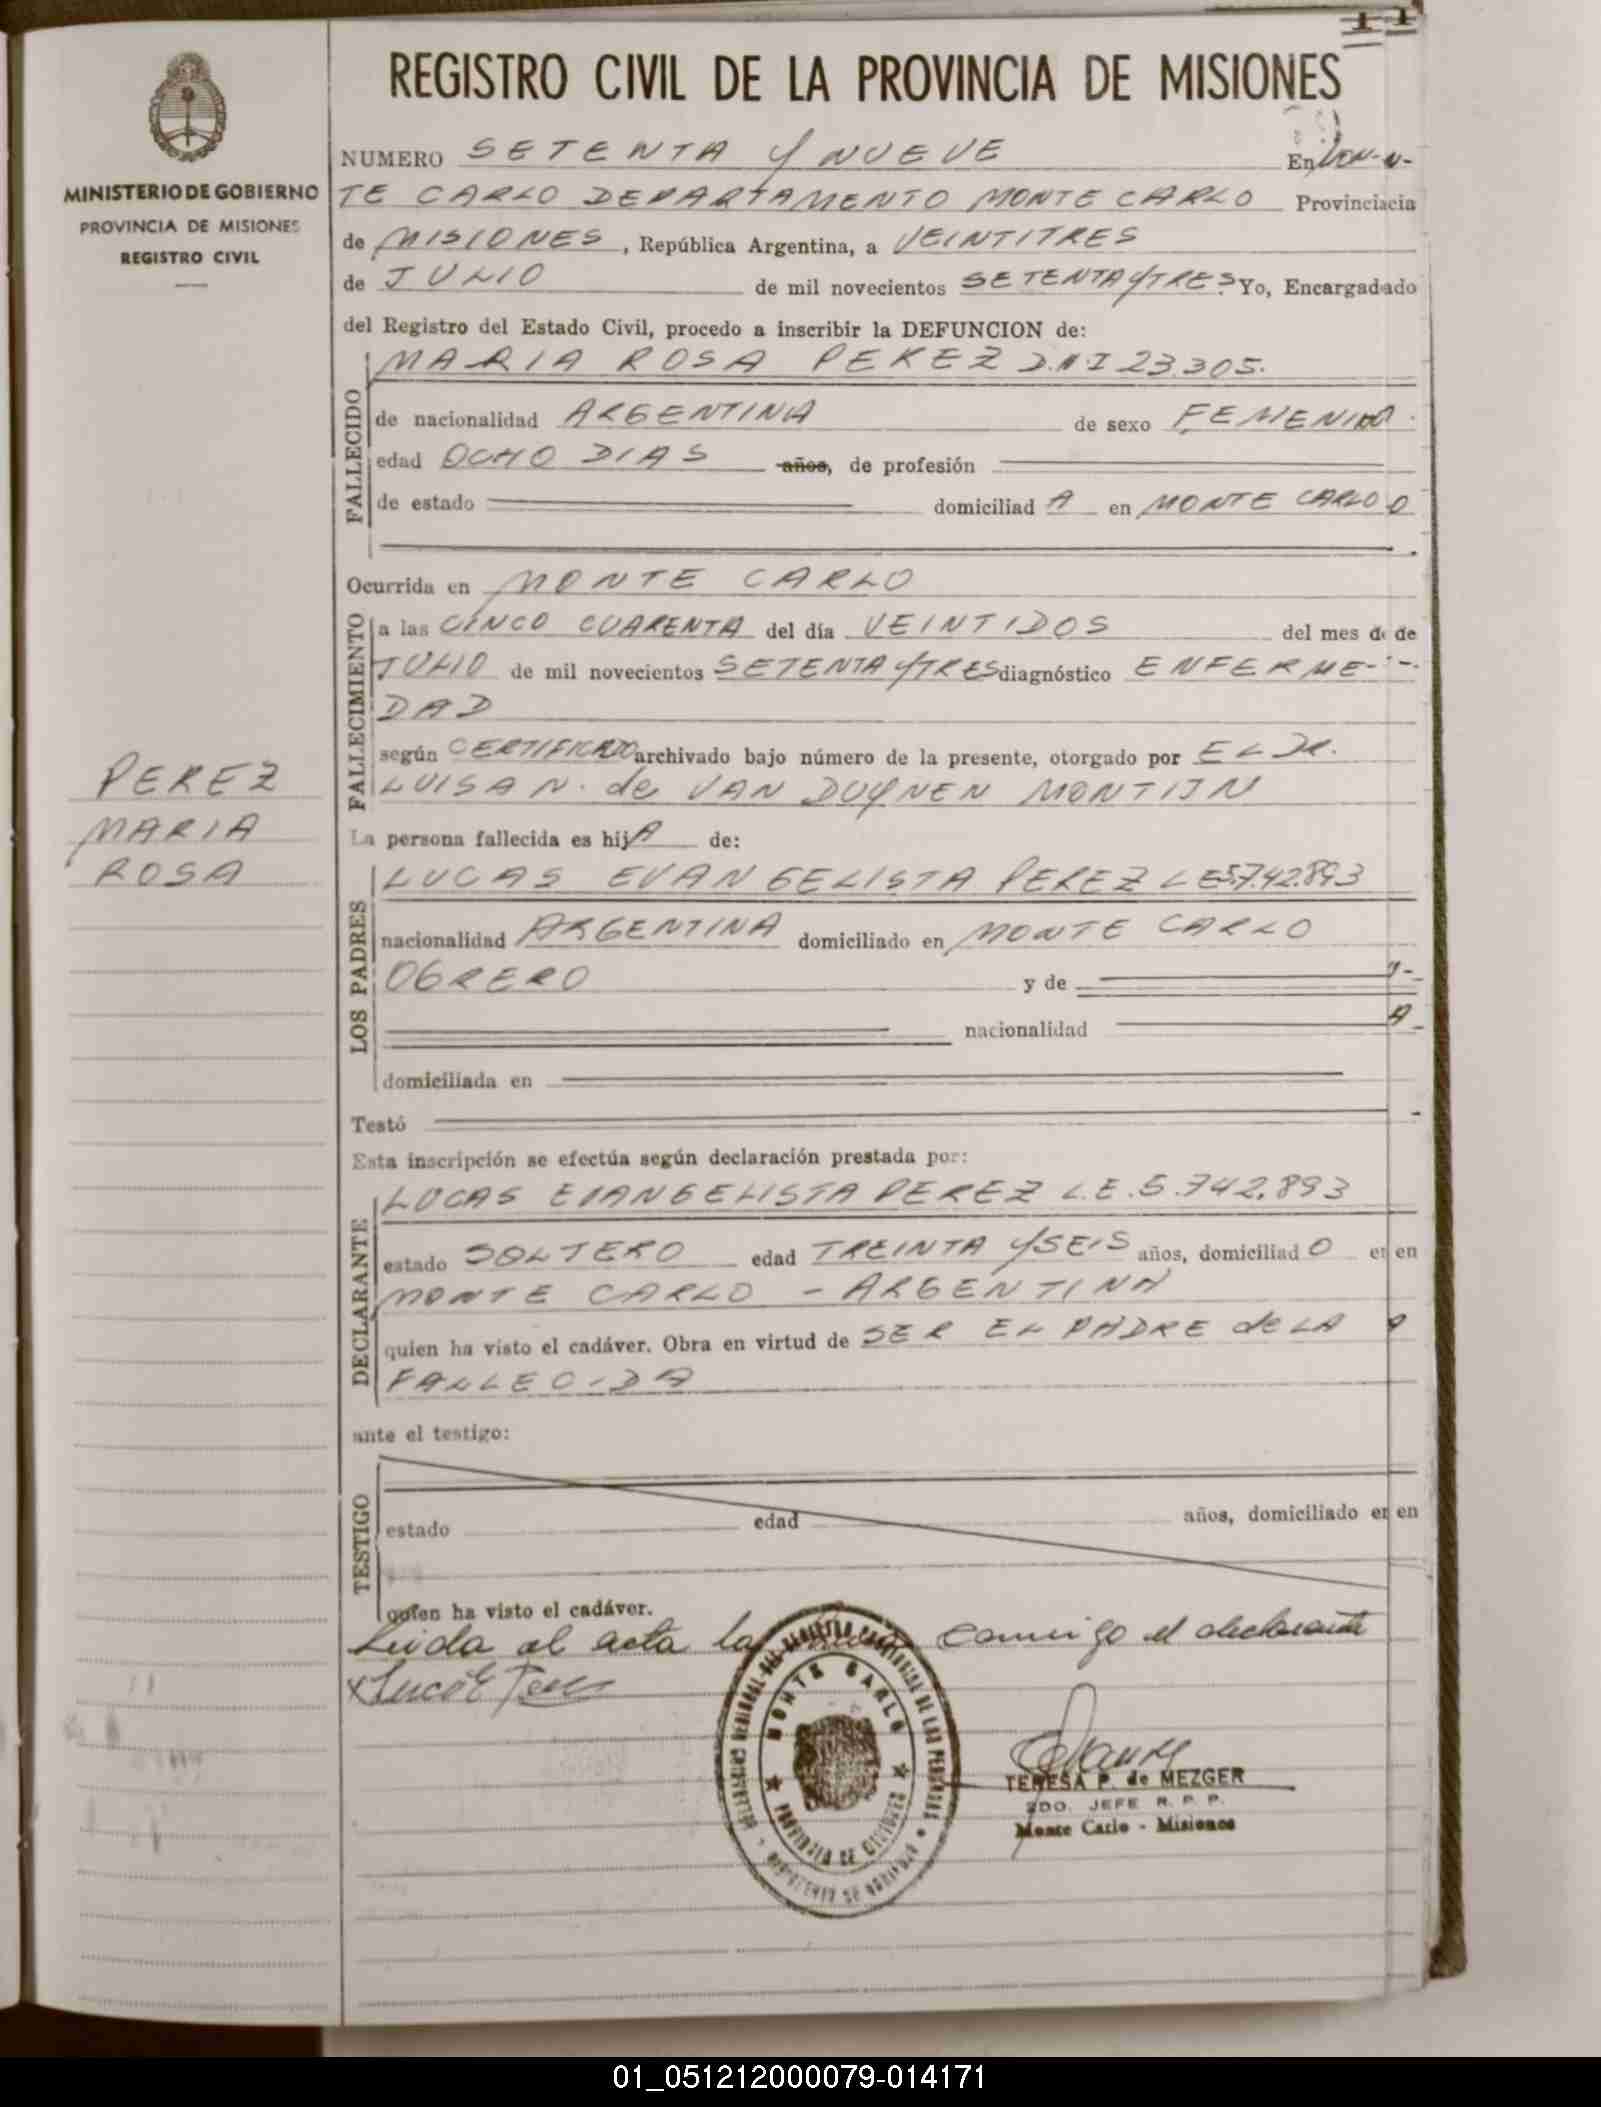 REGISTRO CIVIL DE LA PROVINCIA DE MISIONES
MINISTERIO DE GOBIERNO
PROVINCIA DE MISIONES
REGISTRO CIVIL
NUMERO SETENTA Y NUEVE En MON-
TE CARLO DEPARTAMENTO MONTE CARLO Provincia
de MISIONES, República Argentina, a VEINTITRES
de JULIO de mil novecientos SETENTA Y TRES Yo, Encargado
del Registro del Estado Civil, procedo a inscribir la DEFUNCION de:
FALLECIDO
MARIA ROSA PEREZ D.N.I 23.305.
de nacionalidad ARGENTINA de sexo FEMENINO
edad OCHO DIAS años, de profesión
de estado domiciliad A en MONTE CARLO
Ocurrida en MONTE CARLO
FALLECIMIENTO
a las CINCO CUARENTA del día VEINTIDOS del mes de
JULIO de mil novecientos SETENTA Y TRES diagnóstico ENFERME-
DAD
según CERTIFICADO archivado bajo número de la presente, otorgado por EL DR.
LUISA N. de VAN DUYNEN MONTIJN
PEREZ
MARIA
ROSA
La persona fallecida es hij A de:
LOS PADRES
LUCAS EVANGELISTA PEREZ L E 5.742.893
nacionalidad ARGENTINA domiciliado en MONTE CARLO
OBRERO y de
nacionalidad
domiciliada en
Testó
Esta inscripción se efectúa según declaración prestada por:
DECLARANTE
LUCAS EVANGELISTA PEREZ L.E. 5.742.893
estado SOLTERO edad TREINTA Y SEIS años, domiciliad O en
MONTE CARLO - ARGENTINA
quien ha visto el cadáver. Obra en virtud de SER EL PADRE de LA
FALLECIDA
ante el testigo:
TESTIGO
estado edad años, domiciliado en
quien ha visto el cadáver.
Leida al acta la conmigo el declarante
MONTE CARLO
PROVINCIA DE MISIONES
TERESA P. de MEZGER
2DO. JEFE R. P. P.
Monte Carlo - Misiones
01_051212000079-014171